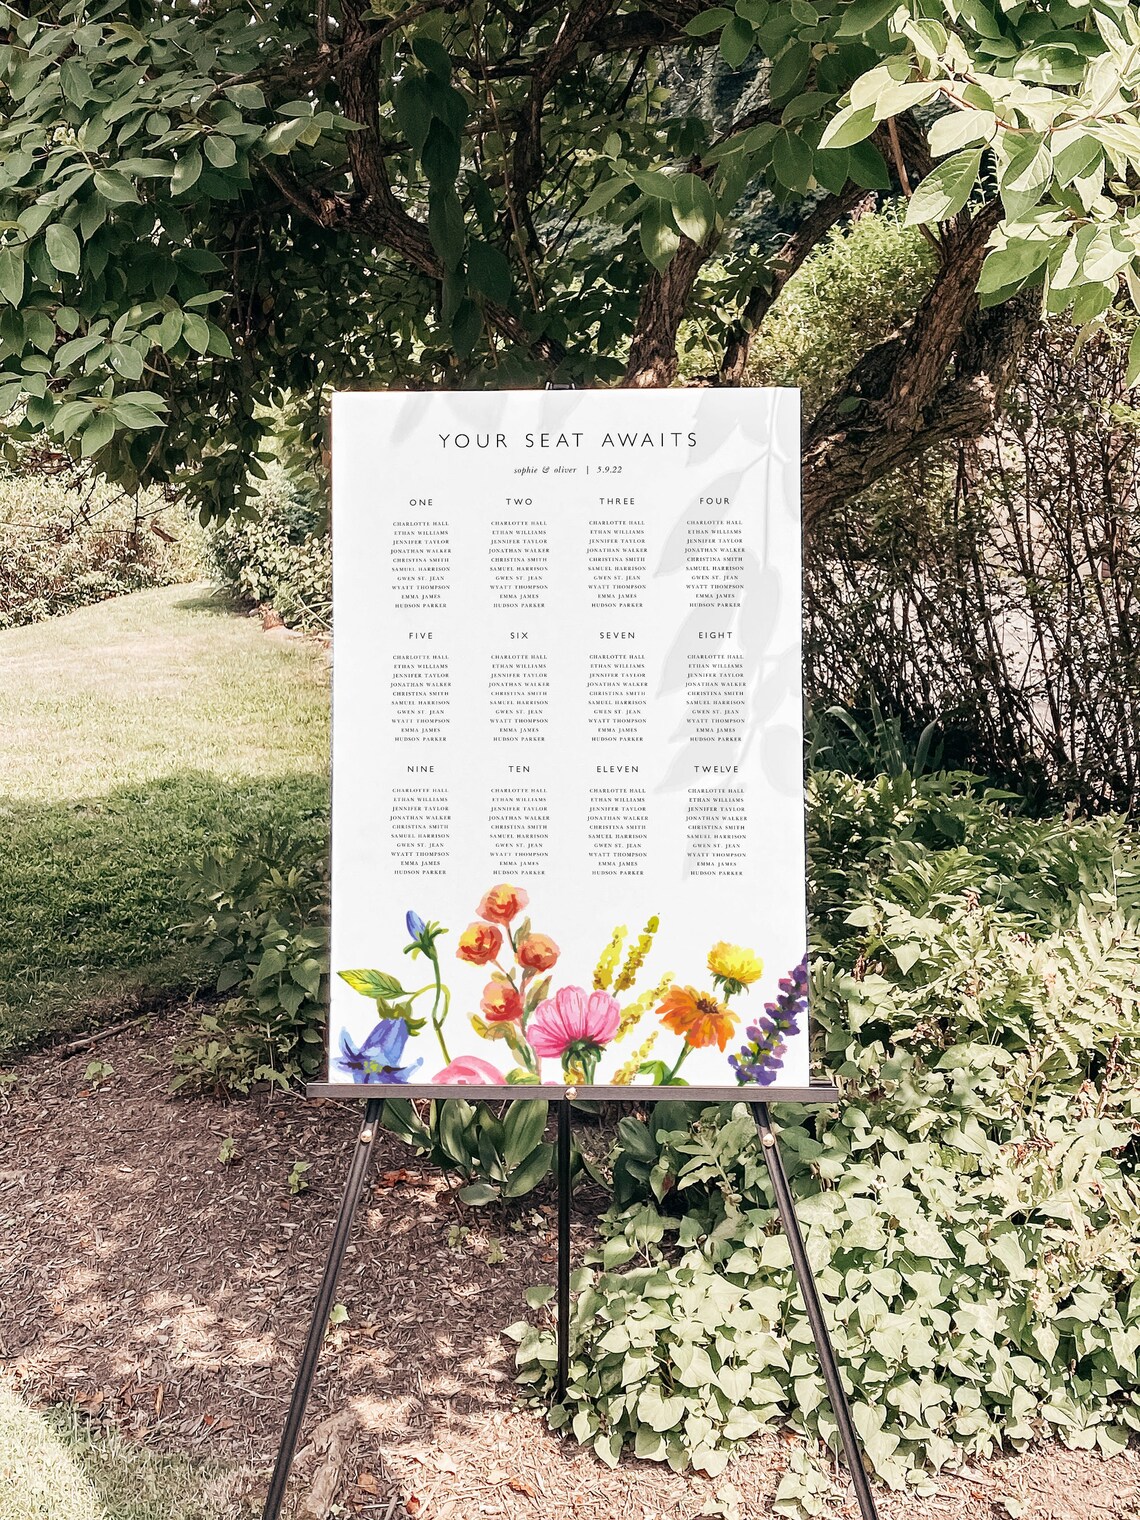 YOUR SEAT AWAITS
sophie & oliver | 5.9.22
ONE
CHARLOTTE HALL
ETHAN WILLIAMS
JENNIFER TAYLOR
JONATHAN WALKER
CHRISTINA SMITH
SAMUEL HARRISON
GWEN ST. JEAN
WYATT THOMPSON
EMMA JAMES
HUDSON PARKER
TWO
CHARLOTTE HALL
ETHAN WILLIAMS
JENNIFER TAYLOR
JONATHAN WALKER
CHRISTINA SMITH
SAMUEL HARRISON
GWEN ST. JEAN
WYATT THOMPSON
EMMA JAMES
HUDSON PARKER
THREE
CHARLOTTE HALL
ETHAN WILLIAMS
JENNIFER TAYLOR
JONATHAN WALKER
CHRISTINA SMITH
SAMUEL HARRISON
GWEN ST. JEAN
WYATT THOMPSON
EMMA JAMES
HUDSON PARKER
FOUR
CHARLOTTE HALL
ETHAN WILLIAMS
JENNIFER TAYLOR
JONATHAN WALKER
CHRISTINA SMITH
SAMUEL HARRISON
GWEN ST. JEAN
WYATT THOMPSON
EMMA JAMES
HUDSON PARKER
FIVE
CHARLOTTE HALL
ETHAN WILLIAMS
JENNIFER TAYLOR
JONATHAN WALKER
CHRISTINA SMITH
SAMUEL HARRISON
GWEN ST. JEAN
WYATT THOMPSON
EMMA JAMES
HUDSON PARKER
SIX
CHARLOTTE HALL
ETHAN WILLIAMS
JENNIFER TAYLOR
JONATHAN WALKER
CHRISTINA SMITH
SAMUEL HARRISON
GWEN ST. JEAN
WYATT THOMPSON
EMMA JAMES
HUDSON PARKER
SEVEN
CHARLOTTE HALL
ETHAN WILLIAMS
JENNIFER TAYLOR
JONATHAN WALKER
CHRISTINA SMITH
SAMUEL HARRISON
GWEN ST. JEAN
WYATT THOMPSON
EMMA JAMES
HUDSON PARKER
EIGHT
CHARLOTTE HALL
ETHAN WILLIAMS
JENNIFER TAYLOR
JONATHAN WALKER
CHRISTINA SMITH
SAMUEL HARRISON
GWEN ST. JEAN
WYATT THOMPSON
EMMA JAMES
HUDSON PARKER
NINE
CHARLOTTE HALL
ETHAN WILLIAMS
JENNIFER TAYLOR
JONATHAN WALKER
CHRISTINA SMITH
SAMUEL HARRISON
GWEN ST. JEAN
WYATT THOMPSON
EMMA JAMES
HUDSON PARKER
TEN
CHARLOTTE HALL
ETHAN WILLIAMS
JENNIFER TAYLOR
JONATHAN WALKER
CHRISTINA SMITH
SAMUEL HARRISON
GWEN ST. JEAN
WYATT THOMPSON
EMMA JAMES
HUDSON PARKER
ELEVEN
CHARLOTTE HALL
ETHAN WILLIAMS
JENNIFER TAYLOR
JONATHAN WALKER
CHRISTINA SMITH
SAMUEL HARRISON
GWEN ST. JEAN
WYATT THOMPSON
EMMA JAMES
HUDSON PARKER
TWELVE
CHARLOTTE HALL
ETHAN WILLIAMS
JENNIFER TAYLOR
JONATHAN WALKER
CHRISTINA SMITH
SAMUEL HARRISON
GWEN ST. JEAN
WYATT THOMPSON
EMMA JAMES
HUDSON PARKER